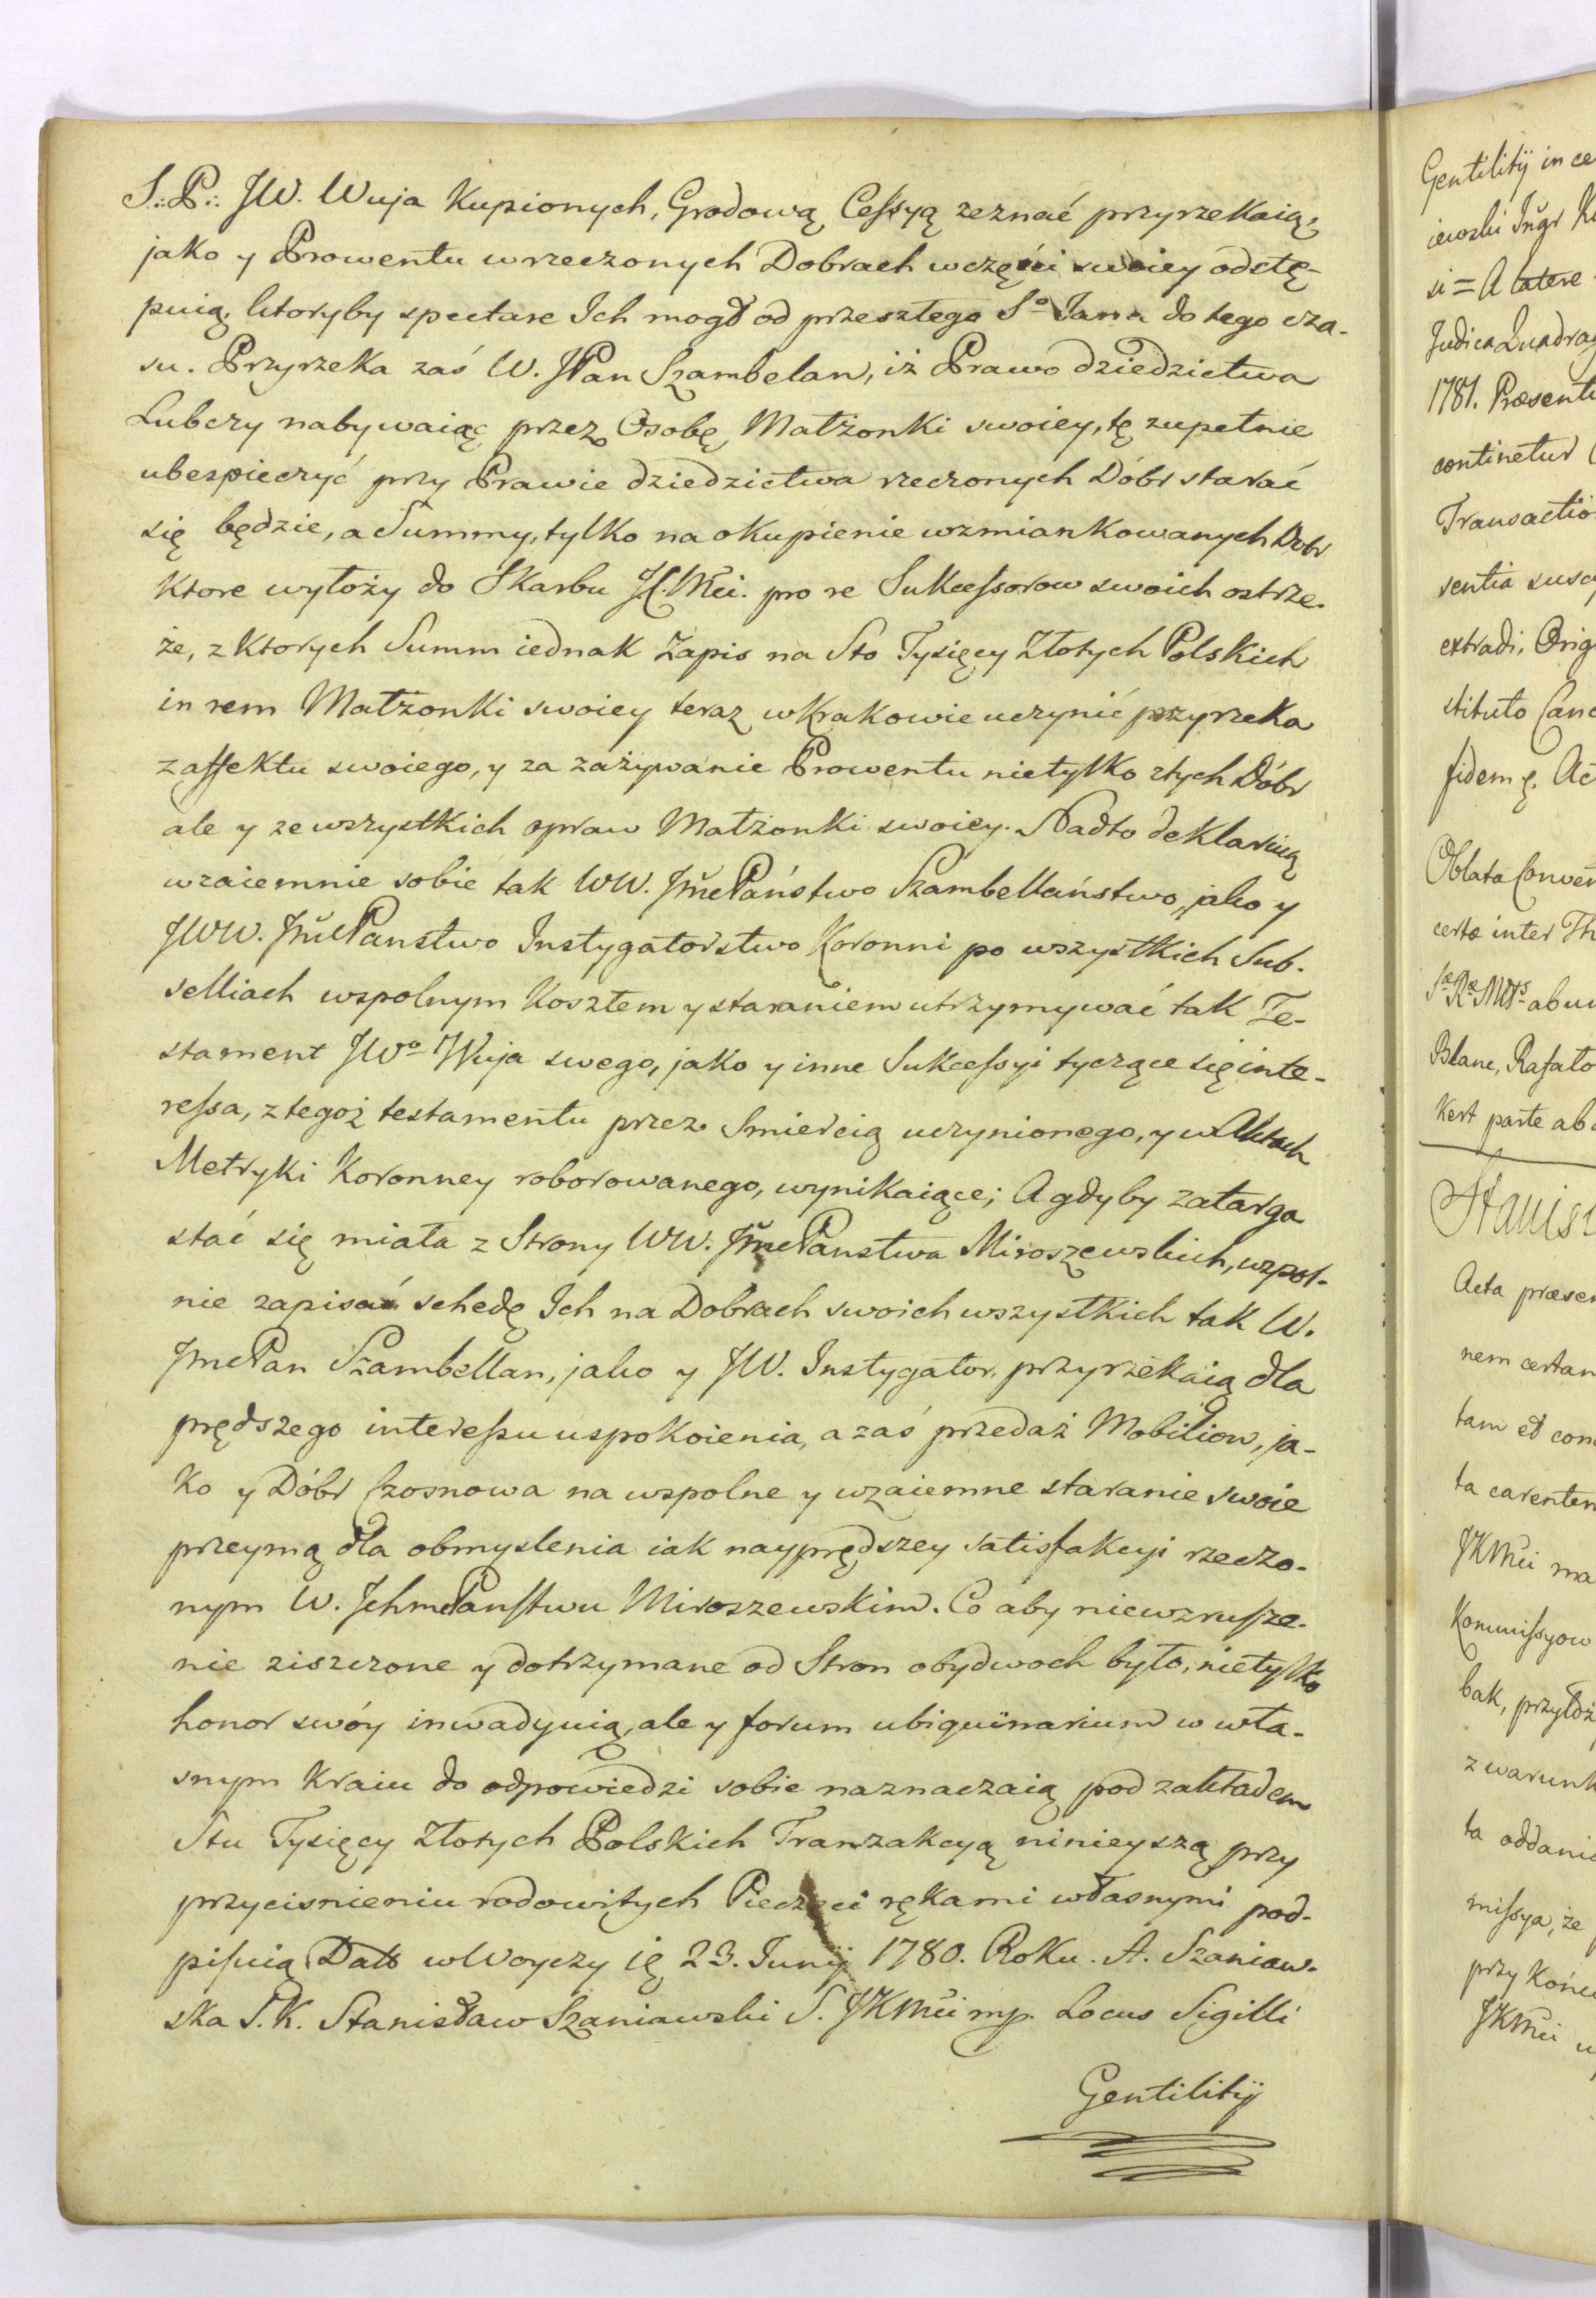 S.:P.: JW. Wuja Kupionych, Grodową Cessyą zeznać przyrzekaią,
jako y Prowentu w rzeczonych Dobrach w części swoiey odstę-
puią, ktoryby spectare Ich mogł od przeszłego So Jana do tego cza-
su. Przyrzeka zaś W. JPan Szambelan, iż Prawo dziedzictwa
Lubczy nabywaiąc przez Osobę Małżonki swoiey, tę zupełnie
ubespieczyć przy Prawie dziedzictwa rzeczonych Dóbr starać
się będzie, a Summy, tylko na okupienie wzmiankowanych Dobr
Ktore wyłoży do Skarbu JK.Mci. pro re Sukcessorow swoich ostrze-
że, z Ktorych Summ iednak Zapis na Sto Tysięcy Złotych Polskich
in rem Małżonki swoiey teraz w Krakowie uczynić przyrzeka
z affektu swoiego, y za zażywanie Prowentu nietylko z tych Dóbr
ale y ze wszystkich spraw Małżonki swoiey. Nadto deklaruią
wzaiemnie sobie tak WW. JmcPaństwo Szambellaństwo, jako y
JWW. JmcPanstwo Instygatorstwo Koronni po wszystkich Sub-
selliach wspolnym Kosztem y staraniem utrzymywać tak Te-
stament JWo Wuja swego, jako y inne Sukcessyi tyczące się inte-
ressa, z tegoż testamentu przez Smiercią uczynionego, y w Aktach
Metryki Koronney roborowanego, wynikaiące; A gdyby zatarga
stać się miała z Strony WW. JmcPanstwa Miroszewskich, wspol-
nie zapisać schedę Ich na Dobrach swoich wszystkich tak W.
JmcPan Szambellan, jako y JW. Instygator, przyrzekaią dla
prędszego interessu uspokoienia, a zaś przedaż Mobiliow, ja-
ko y Dóbr Czosnowa na wspolne y wzaiemne staranie swoie
przeymą dla obmyslenia iak nayprędszey satisfakcyi rzeczo-
nym W. JchmcPanstwu Miroszewskim. Co aby niewzrusze-
nie ziszczone y dotrzymane od Stron obydwoch było, nietylko
honor swóy inwadyuią, ale y forum ubiquinarium w wła-
snym Kraiu do odpowiedzi sobie naznaczaią pod zakładem
Stu Tysięcy Złotych Polskich Tranzakcyą ninieyszą przy
przycisnieniu rodowitych Pieczęci rękami własnymi pod-
pisuią Datt w Woyczy ię 23. Junij 1780. Roku. A. Szaniaw-
ska S.K. Stanisław Szaniawski S. JKMci mp. Locus Sigilli
Gentilitij
Gentilitij in ce
iewski Ingr
si = A latere
Judica Quadrag
1781. Præsenti
continetur
Transactio
sentia susc
extradi, Orig
stituto Canc
fidem
Oblata Conven
certæ inter
ab
Blanc, Rafało
Kert parte ab
Stanis
Acta præsen
nem certam
tam et con
ta carenten
JKMci ma
Kommissyow
bak,
z warunk
ta oddani
missya, że
przy Końc
JKMci